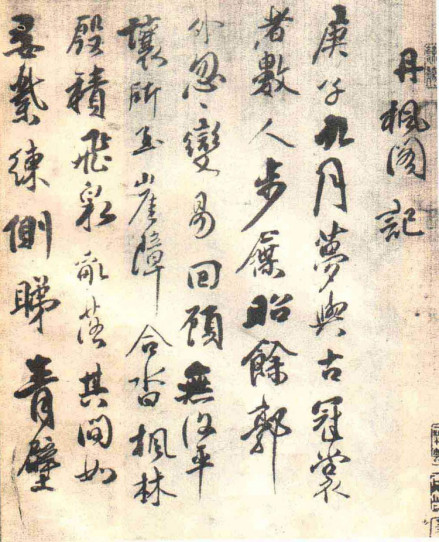 丹枫阁記
庚子九月夢與古冠裳
者數人步屧昭餘郭
外忽〻變易回顧無復平
壤所至崖障合沓枫林
殷積飛彩気蓊其間如
縈練側睇青壁